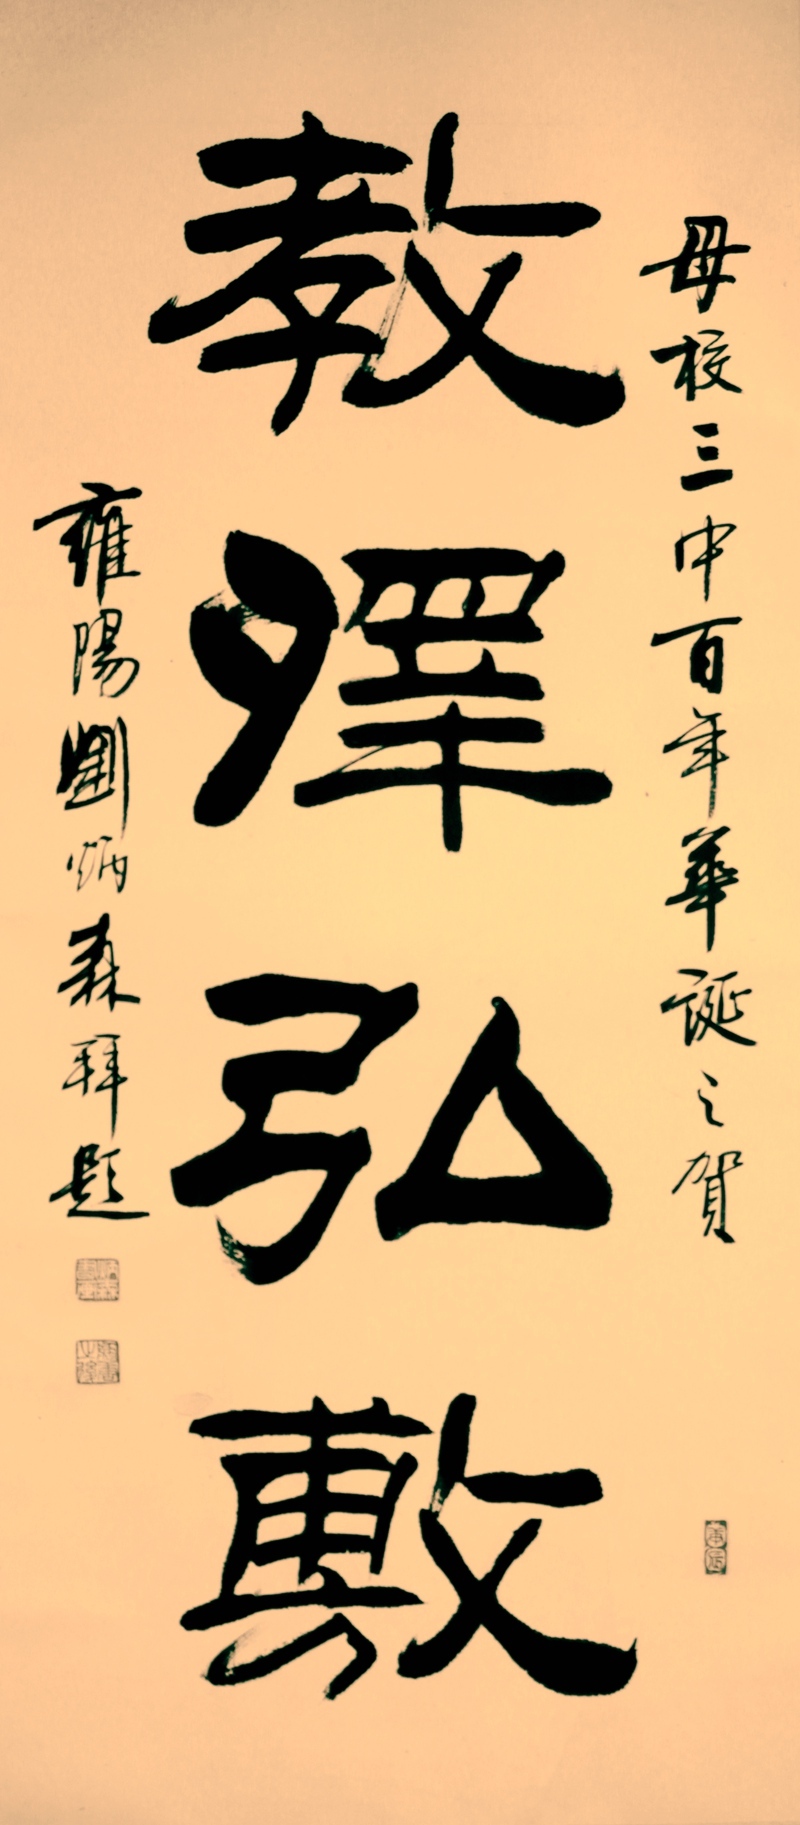 母校三中百年華誕之賀
教澤弘敷
雍陽劉炳森拜題
庚辰